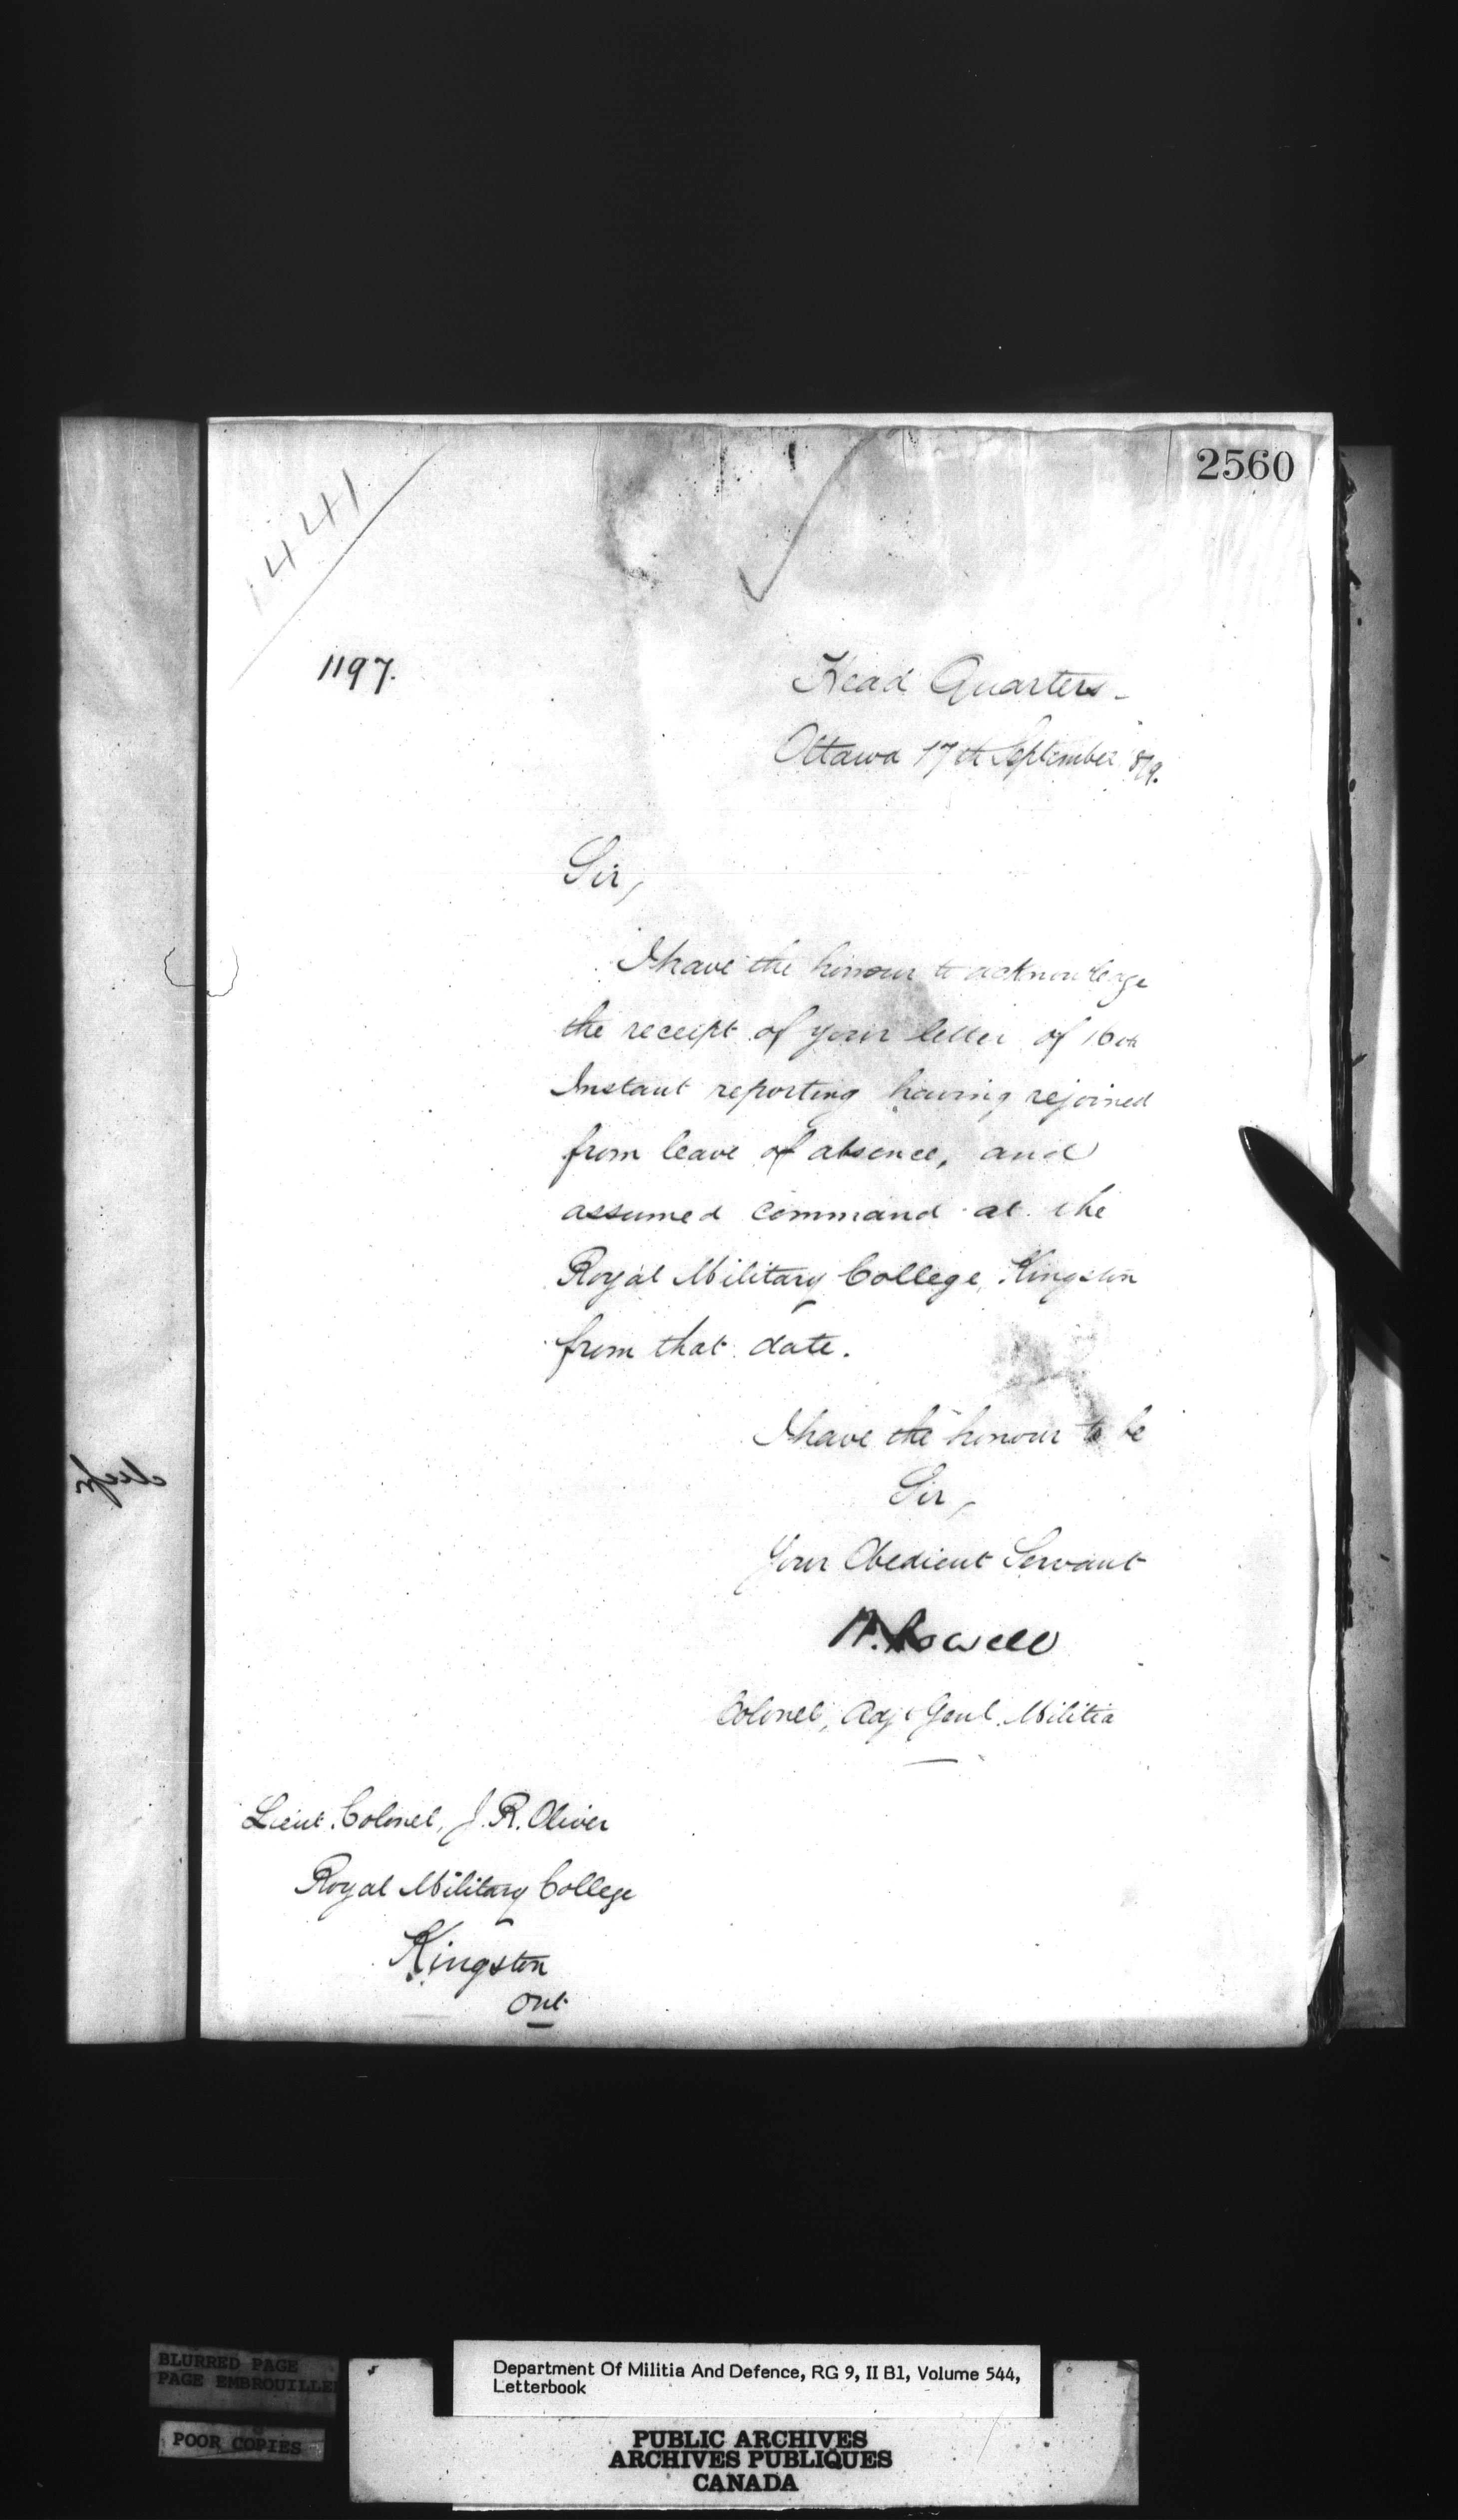 2560
1441
1197.
Head Quarters
Ottawa 17th September 879.
Sir,
I have the honour to acknowledge
the receipt of your letter of 16th
Instant reporting having rejoined
from leave of absence, and
assumed command at the
Royal Military College, Kingston
from that date.
I have the honour to be
Sir,
Your Obedient Servant
W. Powell
Colonel, Adjt Genl. Militia
Lieut. Colonel, J. R. Oliver
Royal Military College
Kingston
Ont
BLURRED PAGE
PAGE EMBROUILLEE
POOR COPIES
Department Of Militia And Defence, RG 9, II B1, Volume 544,
Letterbook
PUBLIC ARCHIVES
ARCHIVES PUBLIQUES
CANADA